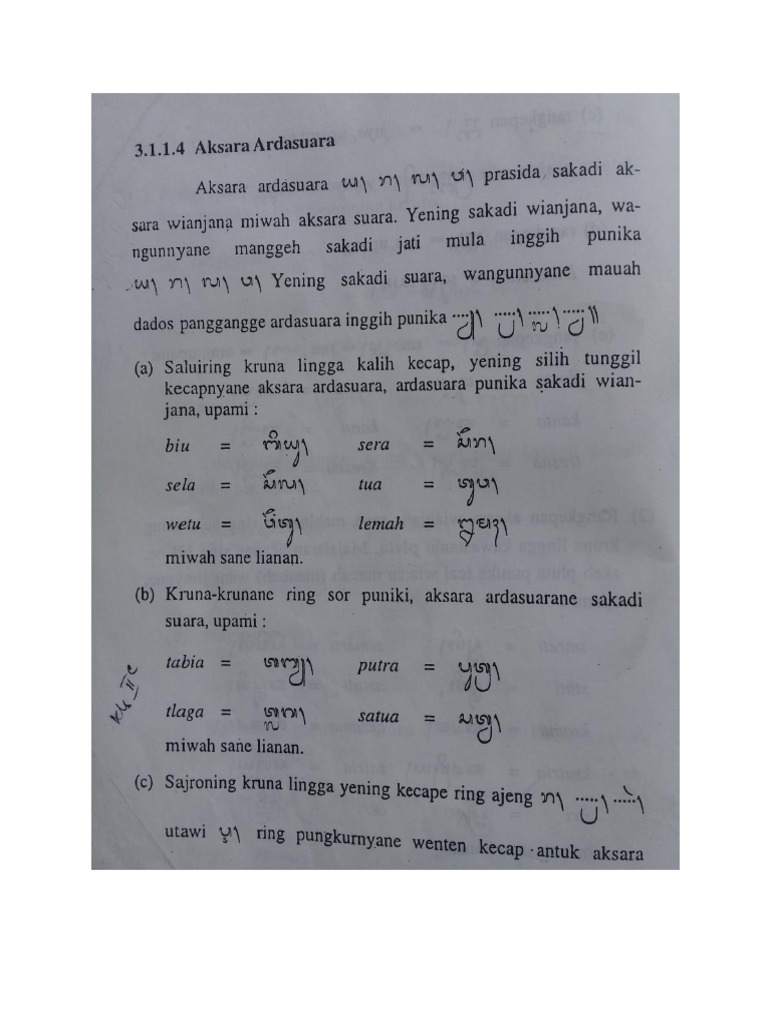 3.1.1.4 Aksara Ardasuara
Aksara ardasuara ᬬ᭞ ᬭ᭞ ᬮ᭞ ᬯ᭞ prasida sakadi ak-
sara wianjana miwah aksara suara. Yening sakadi wianjana, wa-
ngunnyane manggeh sakadi jati mula inggih punika
ᬬ᭞ ᬭ᭞ ᬮ᭞ ᬯ᭞ Yening sakadi suara, wangunnyane mauah
dados panggangge ardasuara inggih punika .....᭄ᬬ᭞ .....᭄ᬭ᭞ .....᭄ᬮ᭞ .....᭄ᬯ᭟
(a) Saluiring kruna lingga kalih kecap, yening silih tunggil
kecapnyane aksara ardasuara, ardasuara punika sakadi wian-
jana, upami :
biu = ᬩᬶᬬᬸ᭞ sera = ᬲᭂᬭ᭞
sela = ᬲᭂᬮ᭞ tua = ᬢᬸᬯ᭞
wetu = ᬯᭂᬢᬸ᭞ lemah = ᬍᬫᬄ᭞
miwah sane lianan.
(b) Kruna-krunane ring sor puniki, aksara ardasuarane sakadi
suara, upami :
tabia = ᬢᬩ᭄ᬬ᭞ putra = ᬧᬸᬢ᭄ᬭ᭞
tlaga = ᬢ᭄ᬮᬕ᭞ satua = ᬲᬢ᭄ᬯ᭞
miwah sane lianan.
(c) Sajroning kruna lingga yening kecape ring ajeng ᬭ᭞ .....᭄ᬭ᭞ .....ᬃ᭞
utawi ring pungkurnyane wenten kecap antuk aksara